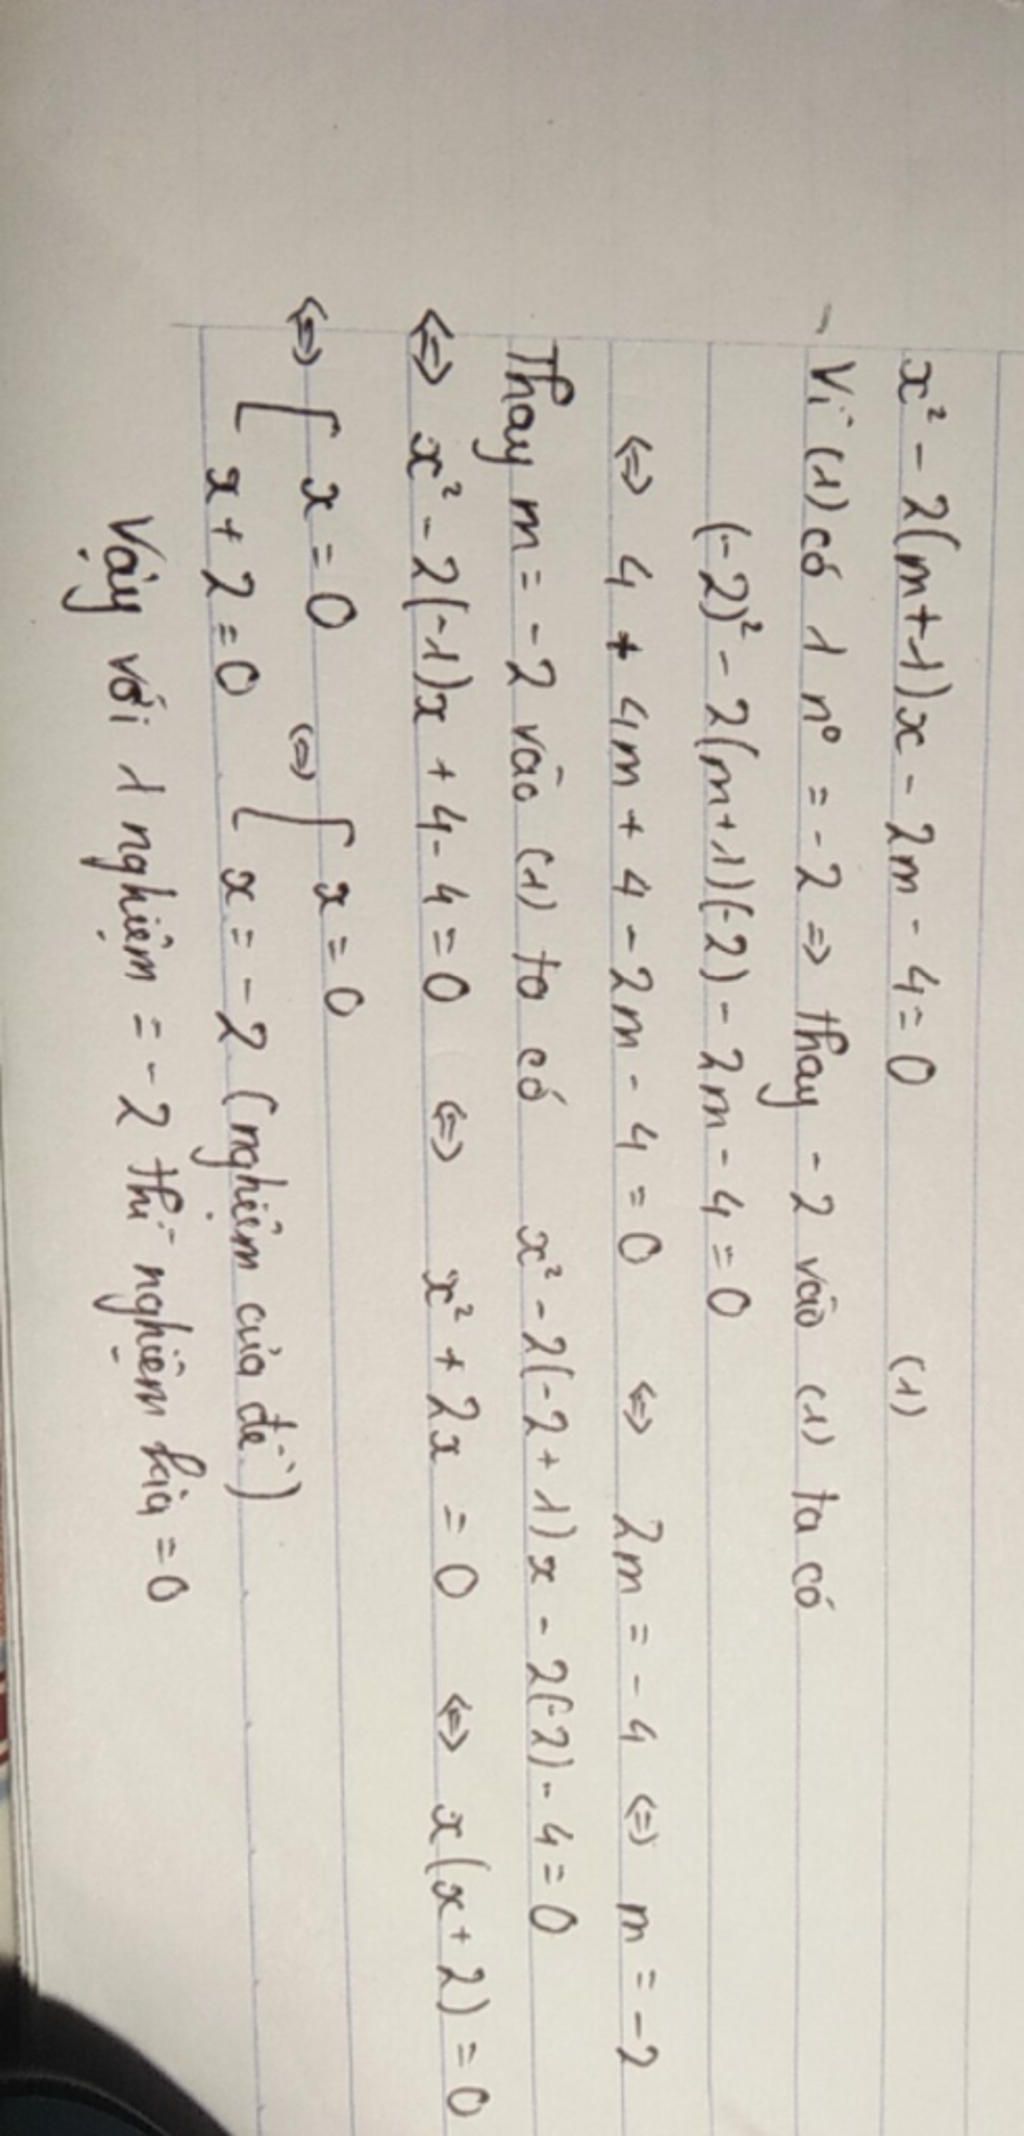 x² - 2(m+1)x - 2m - 4 = 0 (1)
- Vì (1) có 1 n⁰ = -2 => thay -2 vào (1) ta có
(-2)² - 2(m+1)(-2) - 2m - 4 = 0
<=> 4 + 4m + 4 - 2m - 4 = 0 <=> 2m = -4 <=> m = -2
Thay m = -2 vào (1) ta có x² - 2(-2+1)x - 2(-2) - 4 = 0
<=> x² - 2(-1)x + 4 - 4 = 0 <=> x² + 2x = 0 <=> x(x+2) = 0
<=> [ x = 0 <=> [ x = 0
x + 2 = 0 x = -2 (nghiệm của đề)
Vậy với 1 nghiệm = -2 thì nghiệm kia = 0